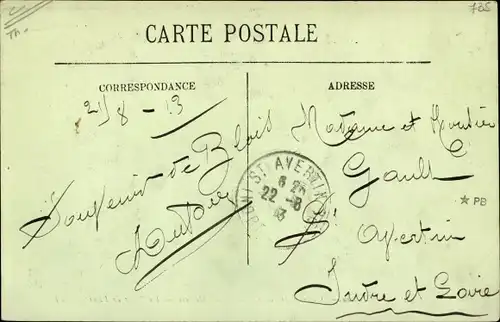 C
Th
735
CARTE POSTALE
CORRESPONDANCE
ADRESSE
21/8 - 13
Souvenir de Blois
Madame et Monsieur
Gault
St
Avertin
Indre et Loire
ST AVERTIN
22 - 8
13
* PB